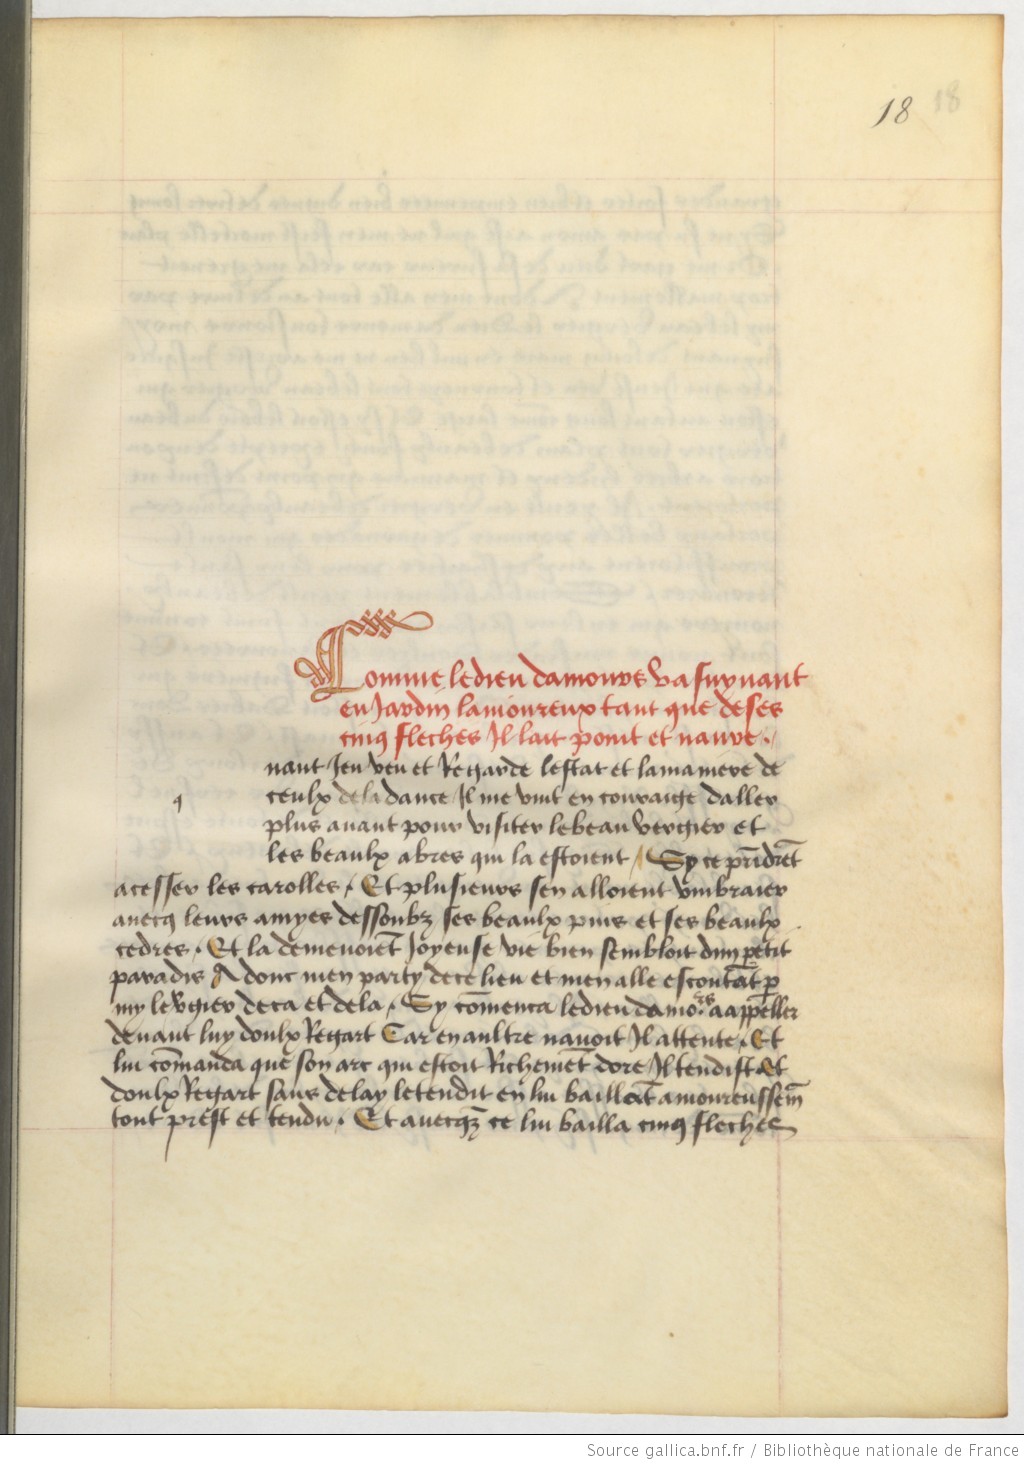 18 18
Comme le dieu damours va suyuant
en Jardin lamoureux tant que de ses
cinq fleches Il lait point et naure .
nant Jeu veu et Regarde lestat et la maniere de
ceulx de la dance / Il me vint en couraige daller
q
plus auant pour visiter le beau vergier et
les beaulx abres qui la estoient / Sy ce prīdrēt
a cesser les carolles / Et plusieurs sen alloient vmbraier
auecq leurs amyes dessoubz ses beaulx pins et ses beaulx
cedres . Et la demenoiēt Joyeuse vie bien sembloit dun petit
paradis A donc men party de ce lieu et men alle escoutāt p
my le vgier deca et dela . Sy cōmenca le dieu damors a appeller
deuant luy doulx Regart Car en aultre nauoit Il attente . Et
lui cōmanda que son arc qui estoit Richemēt dore Il tendist Et
doulx Regart sans delay le tendit en lui baillāt amoureussem̄
tout prest et tendu . Et auecqz ce lui bailla cinq fleches
Source gallica.bnf.fr / Bibliothèque nationale de France